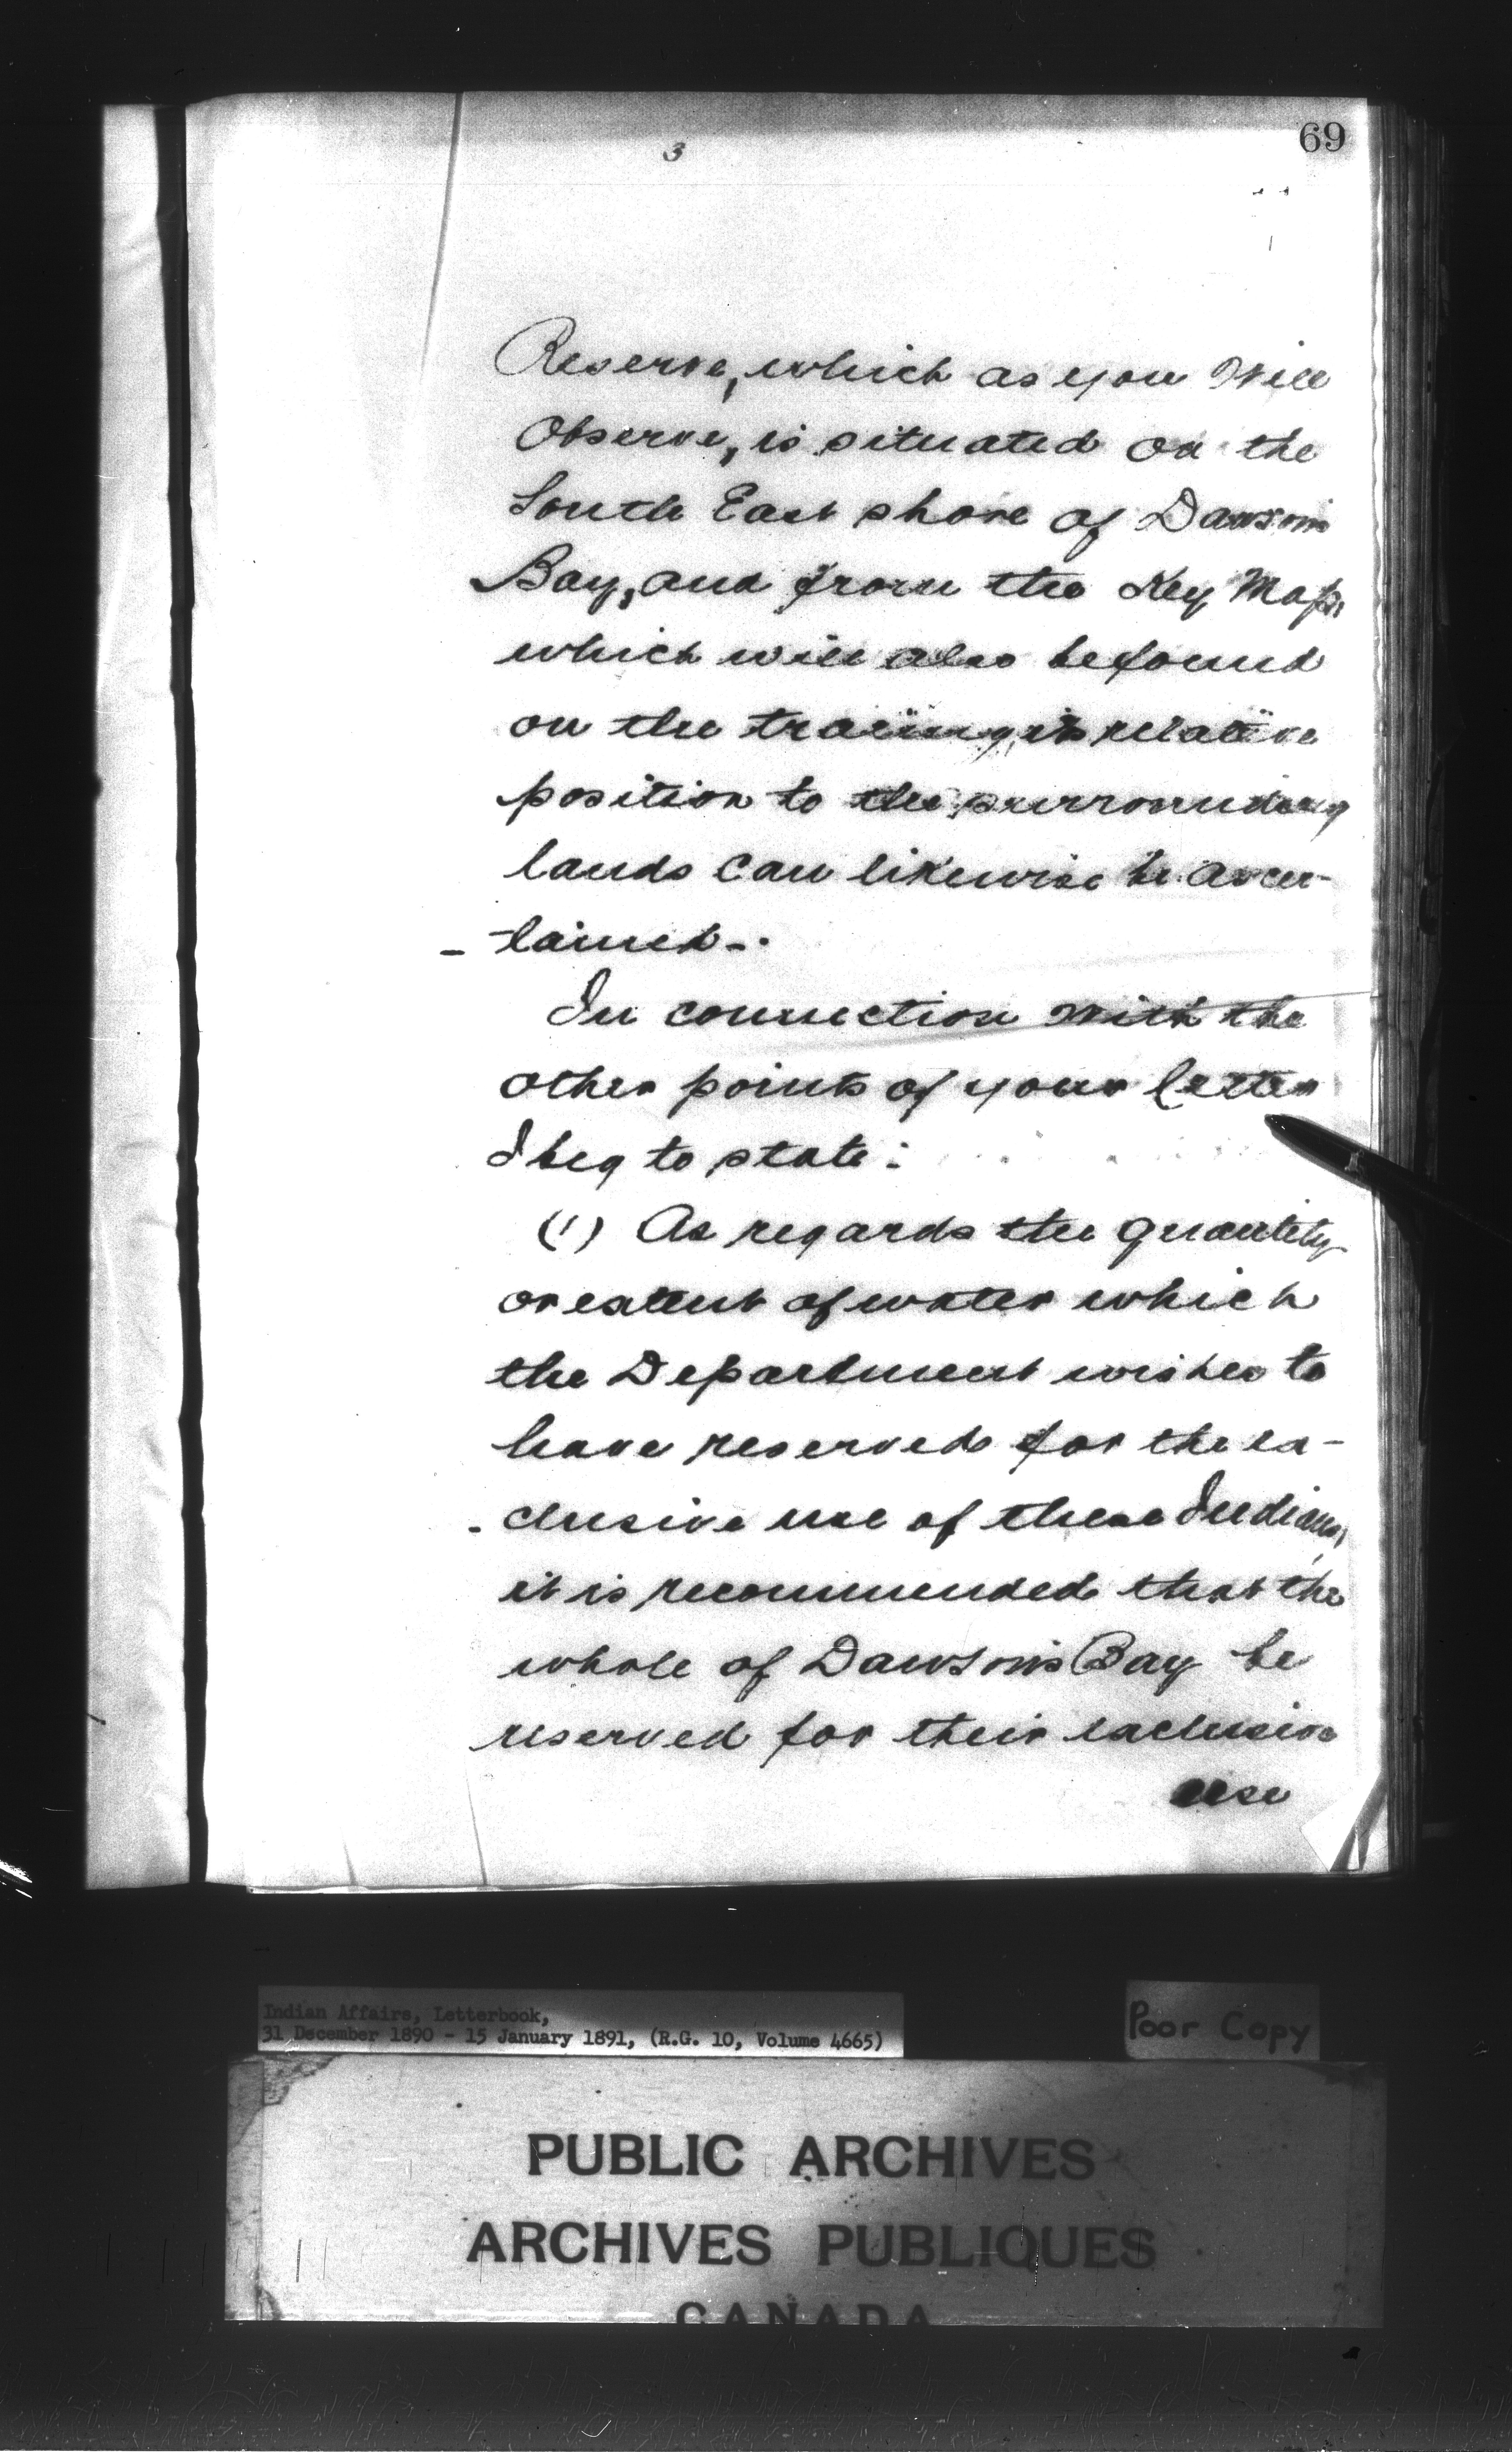 3
69
Reserve, which as you Will
Observe, is situated on the
South East shore of Dawson
Bay, and from the Key Map,
which will also be found
on the tracing, its relative
position to the surrounding
lands can likewise be ascer-
- tained -.
In connection with the
other points of your letter
I beg to state:
(1) As regards the quantity
or extent of water which
the Department wishes to
have reserved for the ex-
- clusive use of these Indians,
it is recommended that the
whole of Dawson's Bay be
reserved for their exclusive
use
Indian Affairs, Letterbook,
31 December 1890 - 15 January 1891, (R.G. 10, Volume 4665)
Poor Copy
PUBLIC ARCHIVES
ARCHIVES PUBLIQUES
CANADA